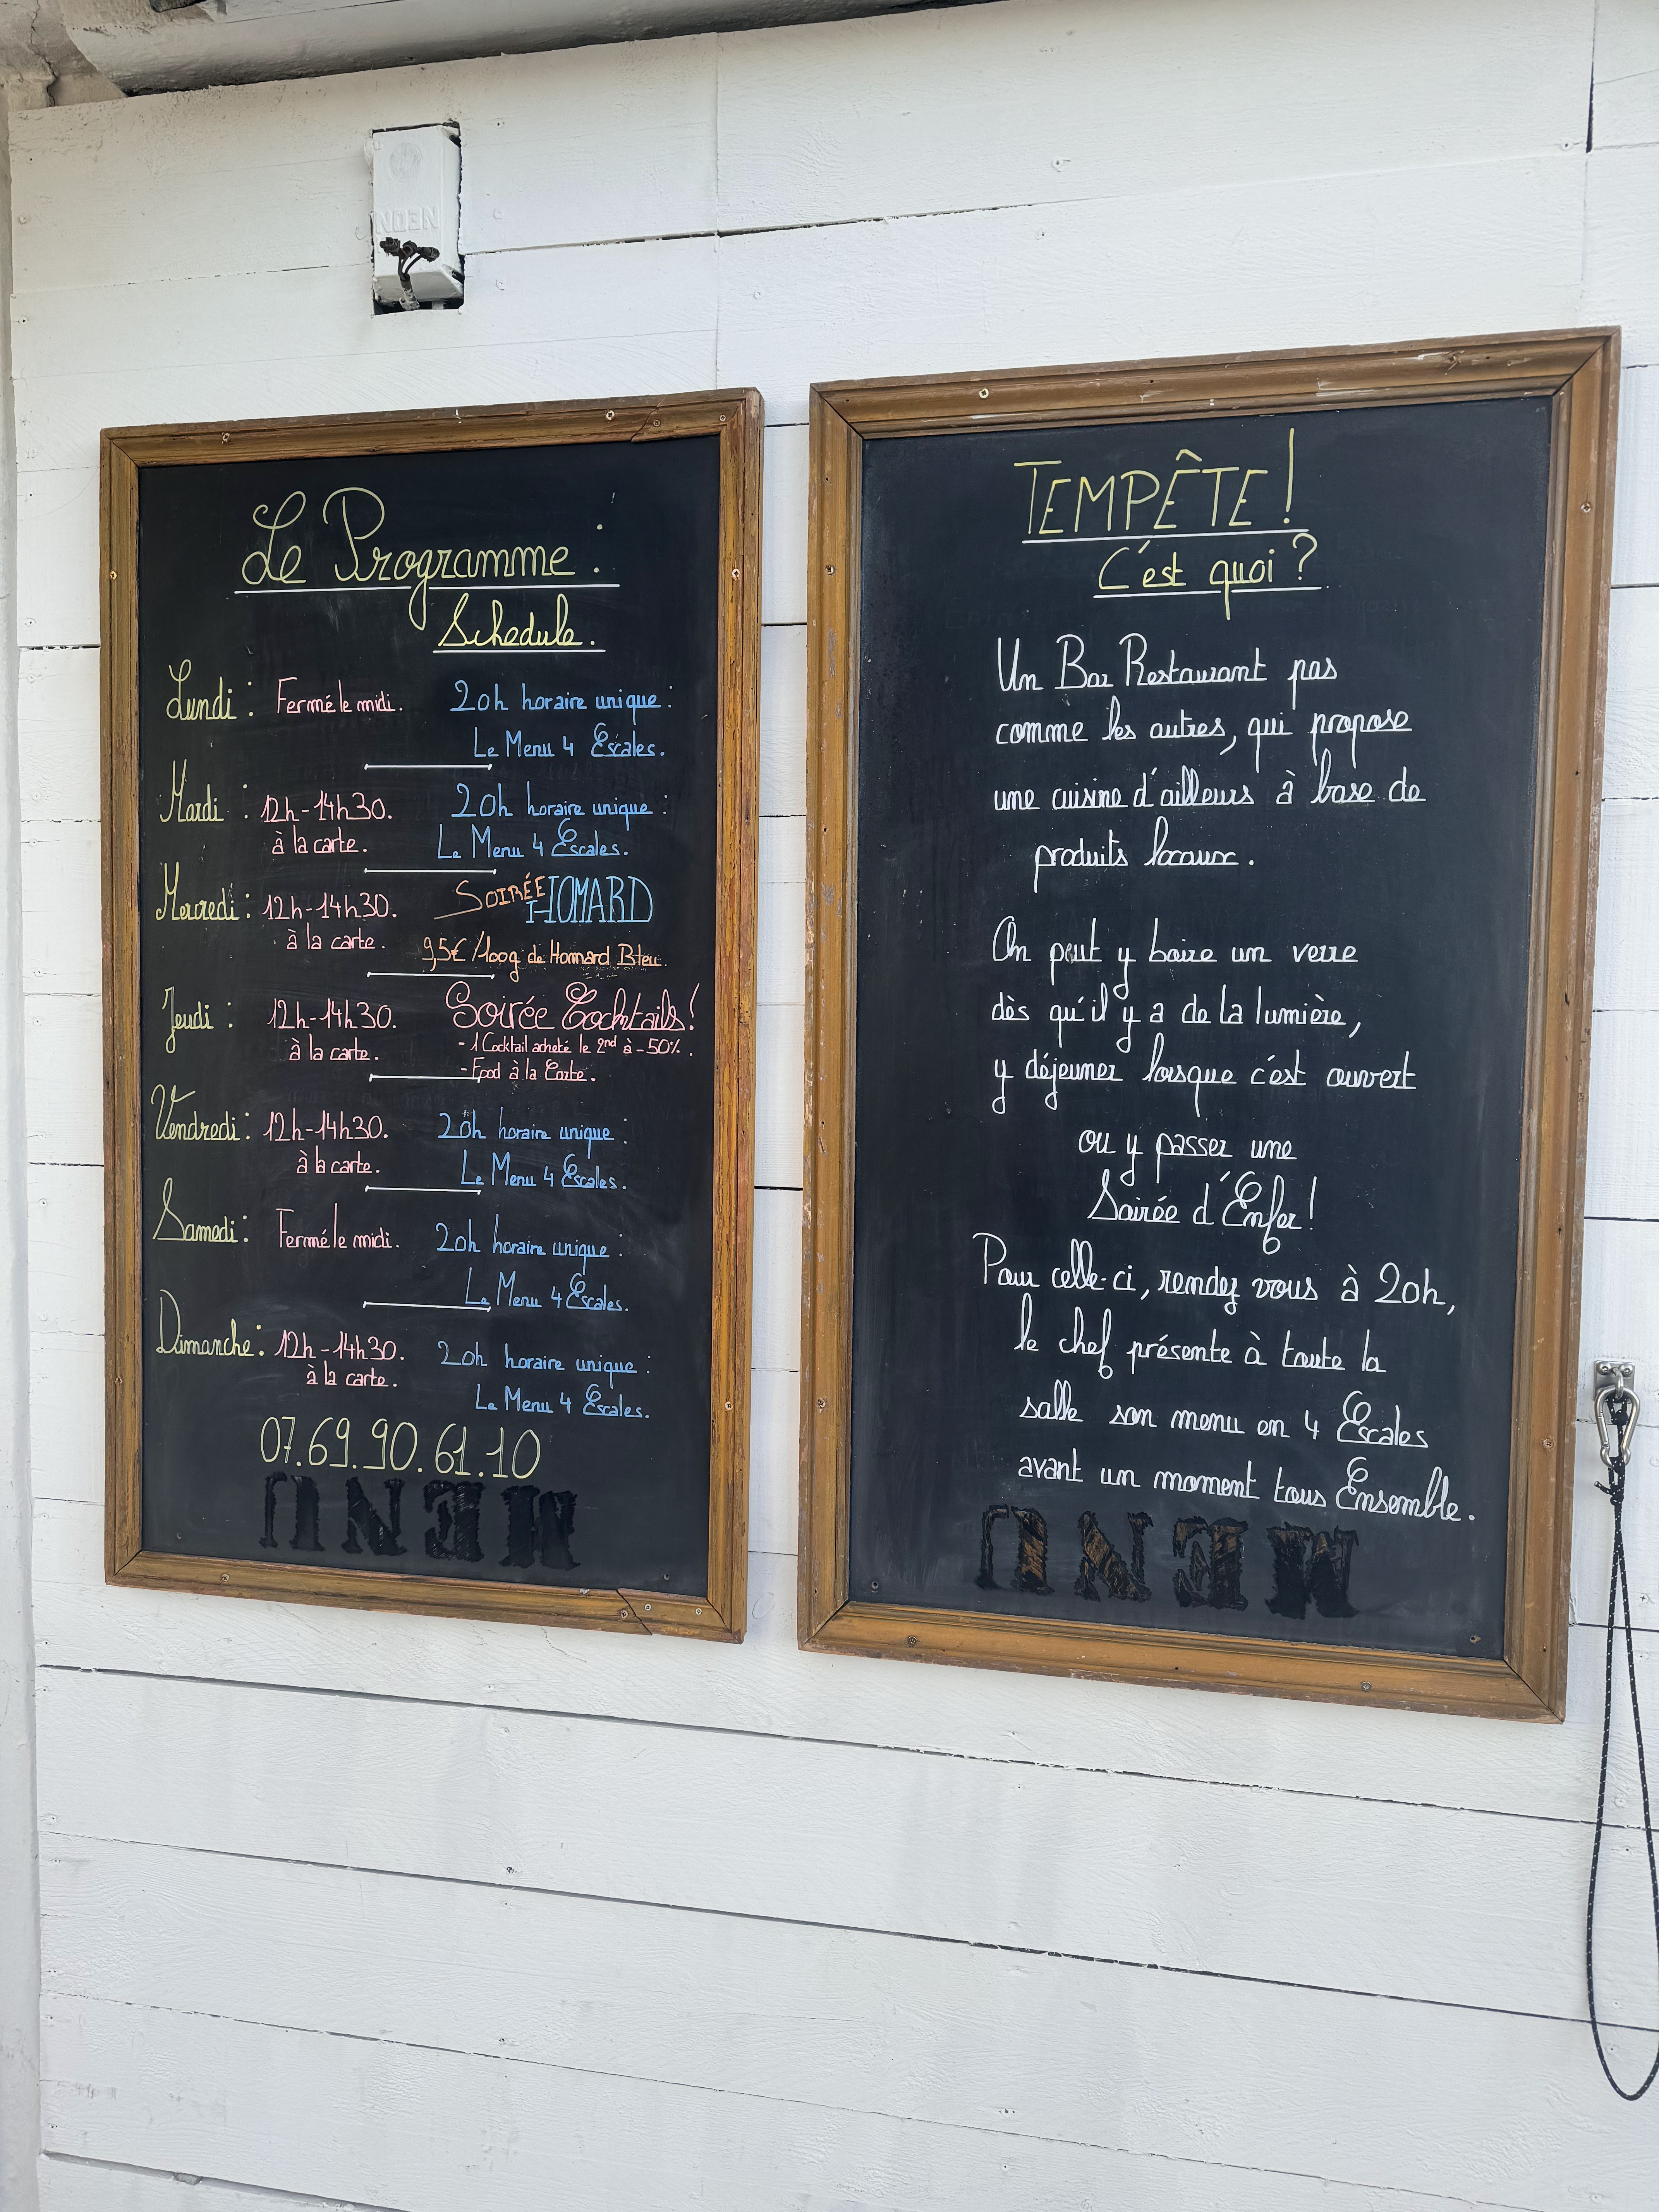 NEON
Le Programme :
Schedule.
Lundi : Fermé le midi. 20h horaire unique :
Le Menu 4 Escales.
Mardi : 12h-14h30. 20h horaire unique :
à la carte. Le Menu 4 Escales.
Mercredi : 12h-14h30. SOIRÉE HOMARD
à la carte. 9,5€/100g de Homard Bleu.
Jeudi : 12h-14h30. Soirée Cocktails!
à la carte. - 1 Cocktail acheté le 2nd à -50%.
- Food à la Carte.
Vendredi : 12h-14h30. 20h horaire unique :
à la carte. Le Menu 4 Escales.
Samedi : Fermé le midi. 20h horaire unique :
Le Menu 4 Escales.
Dimanche : 12h-14h30. 20h horaire unique :
à la carte. Le Menu 4 Escales.
07.69.90.61.10
MENU
TEMPÊTE !
C'est quoi ?
Un Bar Restaurant pas
comme les autres, qui propose
une cuisine d'ailleurs à base de
produits locaux.
On peut y boire un verre
dès qu'il y a de la lumière,
y déjeuner lorsque c'est ouvert
ou y passer une
Soirée d'Enfer !
Pour celle-ci, rendez vous à 20h,
le chef présente à toute la
salle son menu en 4 Escales
avant un moment tous Ensemble.
MENU